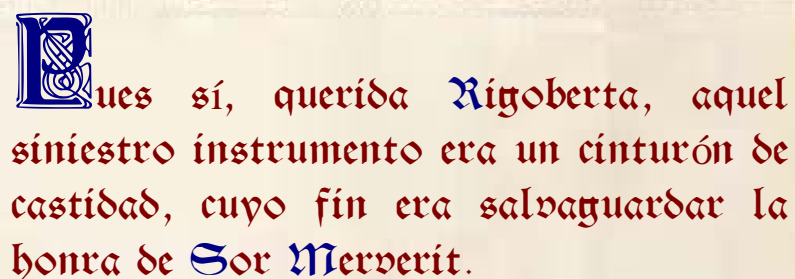 Pues sí, querida Rigoberta, aquel
siniestro instrumento era un cinturón de
castidad, cuyo fin era salvaguardar la
honra de Sor Merverit.